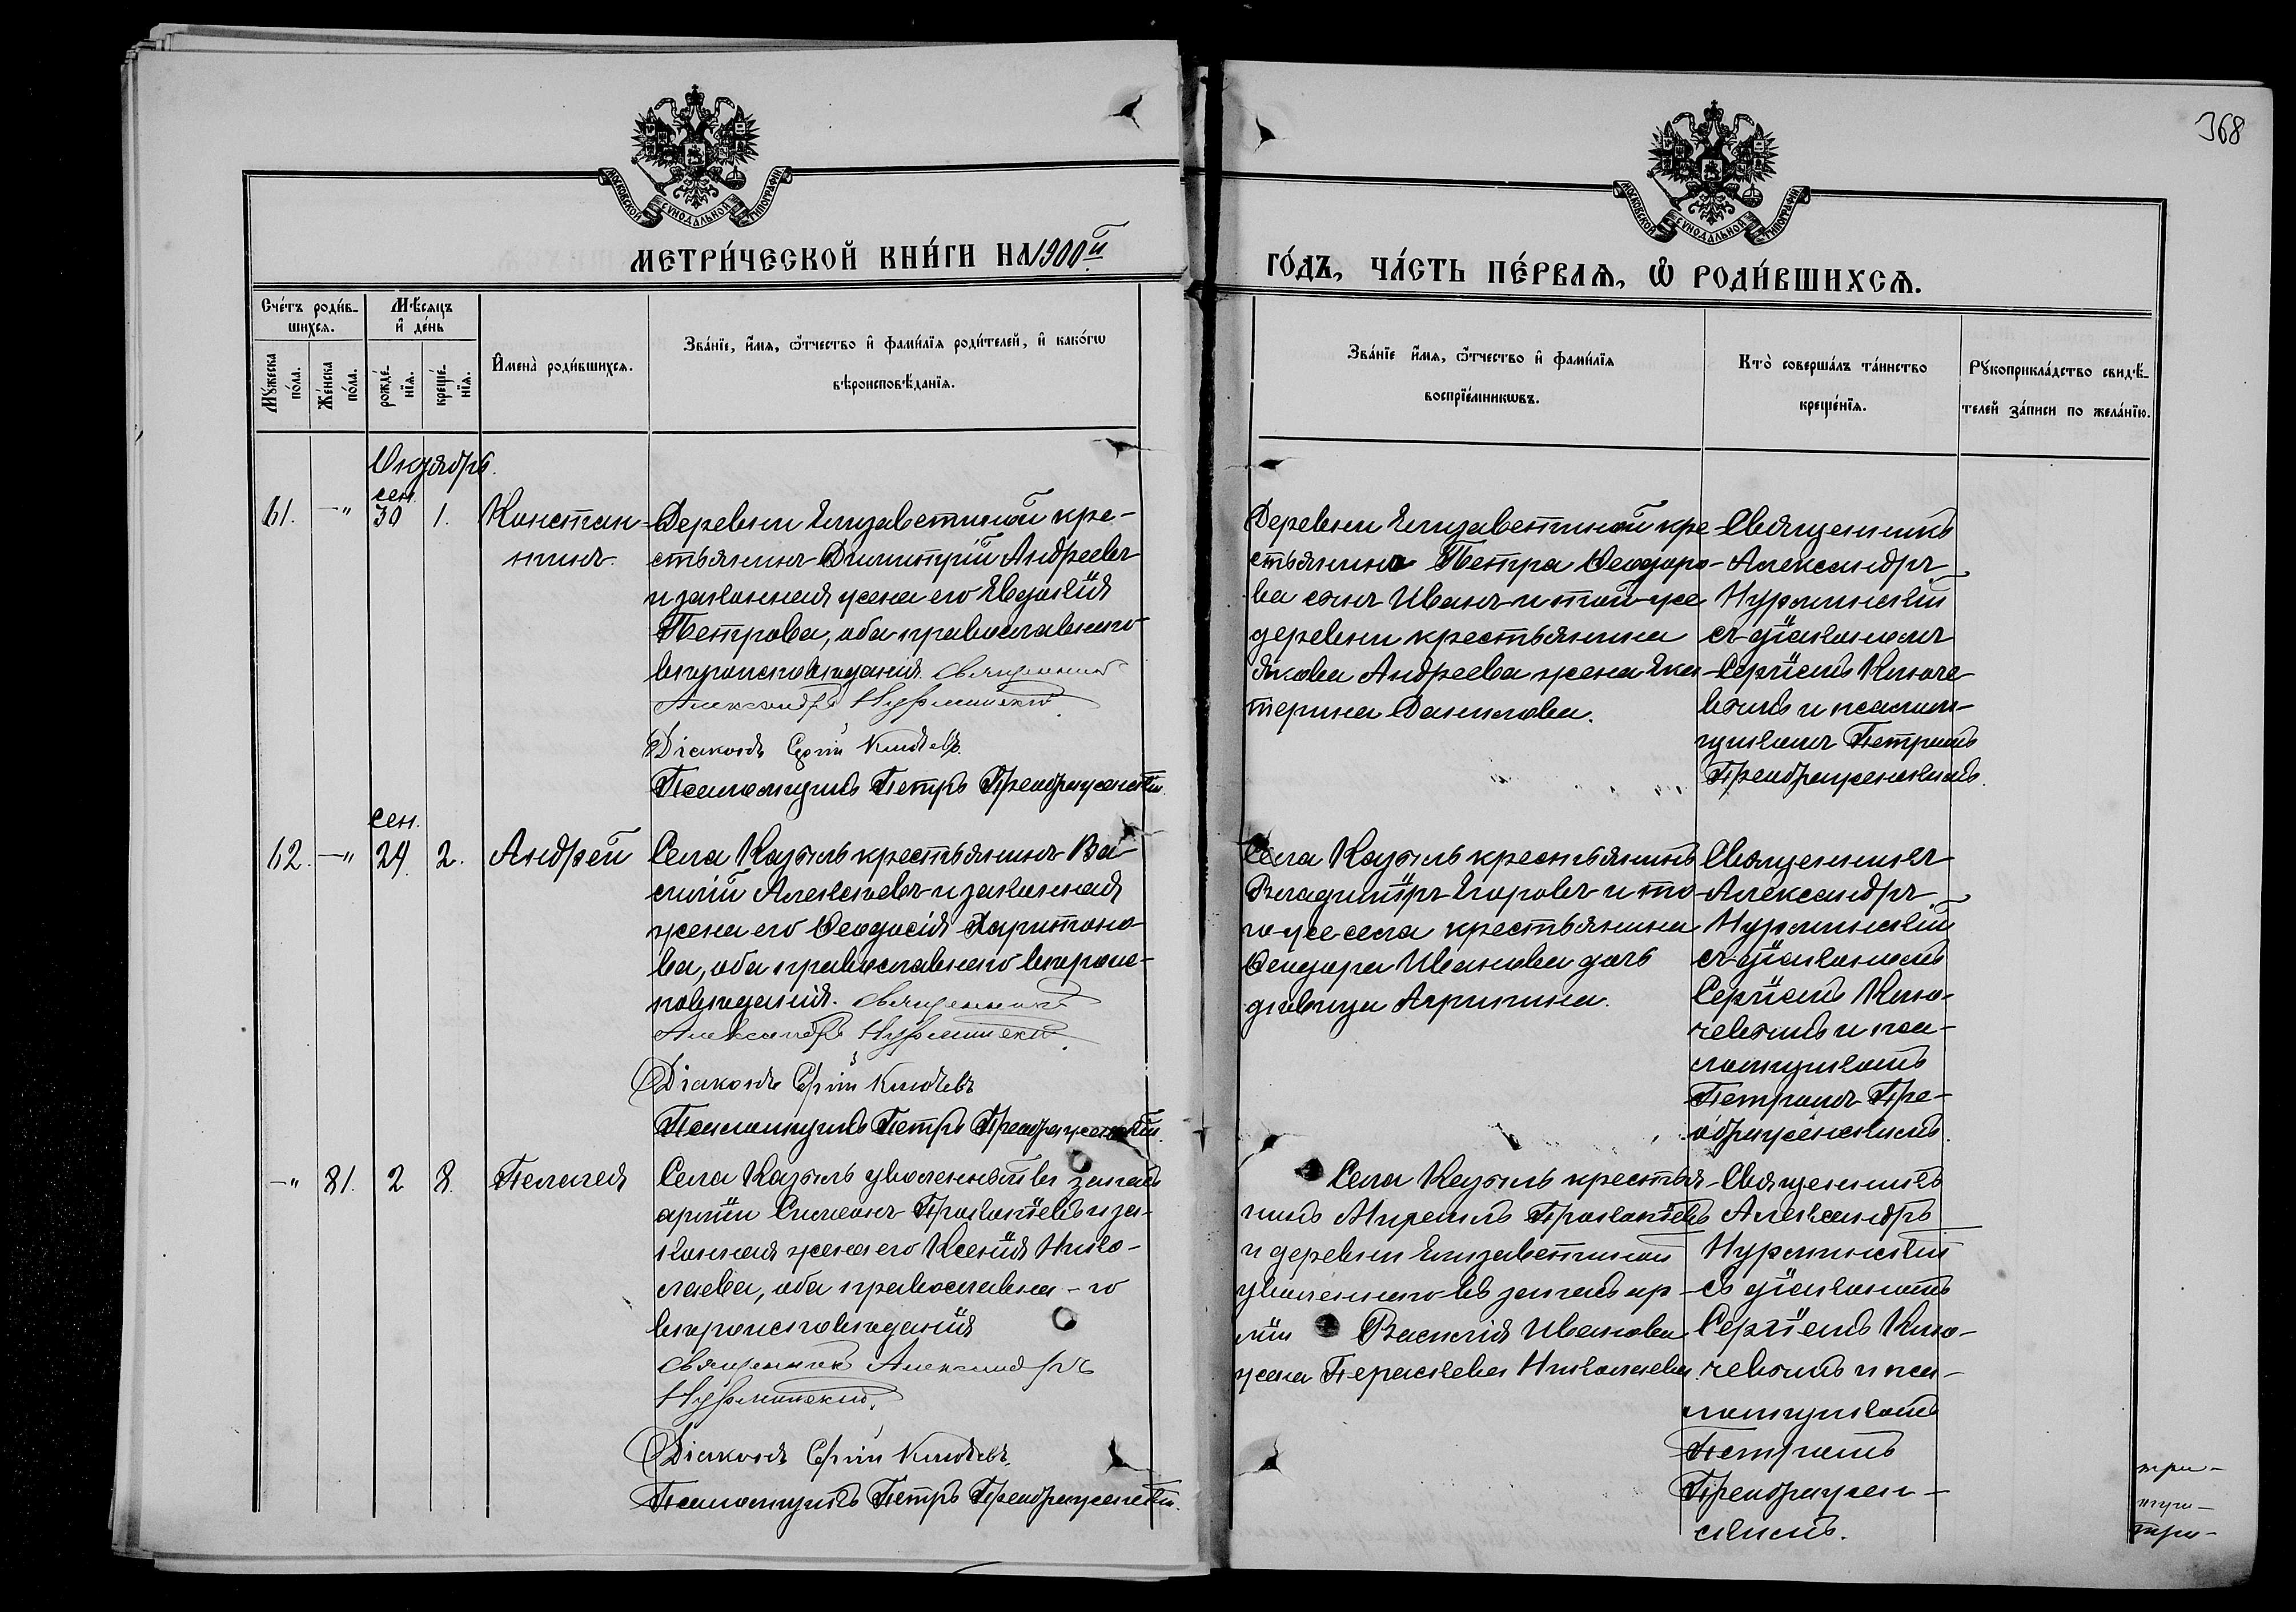 368
МОСКОВСКОЙ СУНОДАЛЬНОЙ ТИПОГРАФІИ
МОСКОВСКОЙ СУНОДАЛЬНОЙ ТИПОГРАФІИ
МЕТРИ́ЧЕСКОЙ КНИ́ГИ НА 1900й
ГО́ДЪ, ЧА́СТЬ ПЕ́РВАѦ, Ѽ РОДИ́ВШИХСѦ.
Сче́тъ роди́в-
шихсѧ.
Мꙋжеска по́ла.
Же́нска по́ла.
Мѣ́сѧцъ
и҆ де́нь
рожде́-
нїѧ.
креще́-
нїѧ.
И҆мена̀ роди́вшихсѧ.
Зва́нїе, и҆́мѧ, ѻ҆́тчество и҆ фами́лїѧ роди́телей, и҆ како́гѡ
вѣроисповѣ́данїѧ.
Зва́нїе и҆́мѧ, ѻ҆́тчество и҆ фами́лїѧ
воспрїе́мникѡвъ.
Кто̀ соверша́лъ та́инство
креще́нїѧ.
Рꙋкоприкла́дство свидѣ́-
телей за́писи по жела́нїю.
Октябрь.
сен.
61. —" 30 1. Констан-
тинъ.
Деревни Елизаветиной кре-
стьянинъ Димитрій Андреевъ
и законная жена его Евдокія
Петрова, оба православнаго
вѣроисповѣданія. Священникъ
Александръ Нурминскій.
Діаконъ Сергій Ключевъ.
Псаломщикъ Петръ Преображенскій.
Деревни Елизаветиной кре-
стьянина Петра Ѳеодоро-
ва сынъ Иванъ и той-же
деревни крестьянина
Якова Андреева жена Ека-
терина Данилова.
Священникъ
Александръ
Нурминскій
съ діакономъ
Сергіемъ Ключе-
вымъ и псалом-
щикомъ Петромъ
Преображенскимъ.
сен.
62. —" 29. 2. Андрей
Села Казыль крестьянинъ Ва-
силій Алексѣевъ и законная
жена его Ѳеодосія Харитоно-
ва, оба православнаго вѣроис-
повѣданія. Священникъ
Александръ Нурминскій.
Діаконъ Сергій Ключевъ
Псаломщикъ Петръ Преображенскій.
Села Казыль крестьянинъ
Владиміръ Егоровъ и то-
го-же села крестьянина
Ѳеодора Иванова дочь
дѣвица Агрипина.
Священникъ
Александръ
Нурминскій
съ діакономъ
Сергіемъ Клю-
чевымъ и пса-
ломщикомъ
Петромъ Пре-
ображенскимъ.
—" 81. 2 8. Пелагея
Села Казыль уволенный въ запасъ
арміи Симеонъ Прокопіевъ и за-
конная жена его Ксенія Нико-
лаева, оба православна-го
вѣроисповѣданія
Священникъ Александръ
Нурминскій.
Діаконъ Сергій Ключевъ.
Псаломщикъ Петръ Преображенскій.
Села Казыль крестья-
нинъ Прокопіевъ
и деревни Елизаветиной
уволеннаго въ запасъ ар-
міи Василія Иванова
жена Параскева Николаева.
Священникъ
Александръ
Нурминскій
съ діакономъ
Сергіемъ Клю-
чевымъ и пса-
ломщикомъ
Петромъ
Преображен-
скимъ.